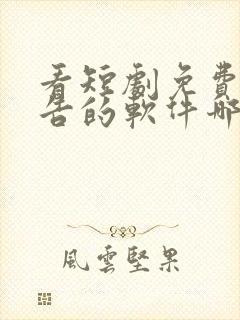 看短劇免費
告的軟件哪
風雲堅果